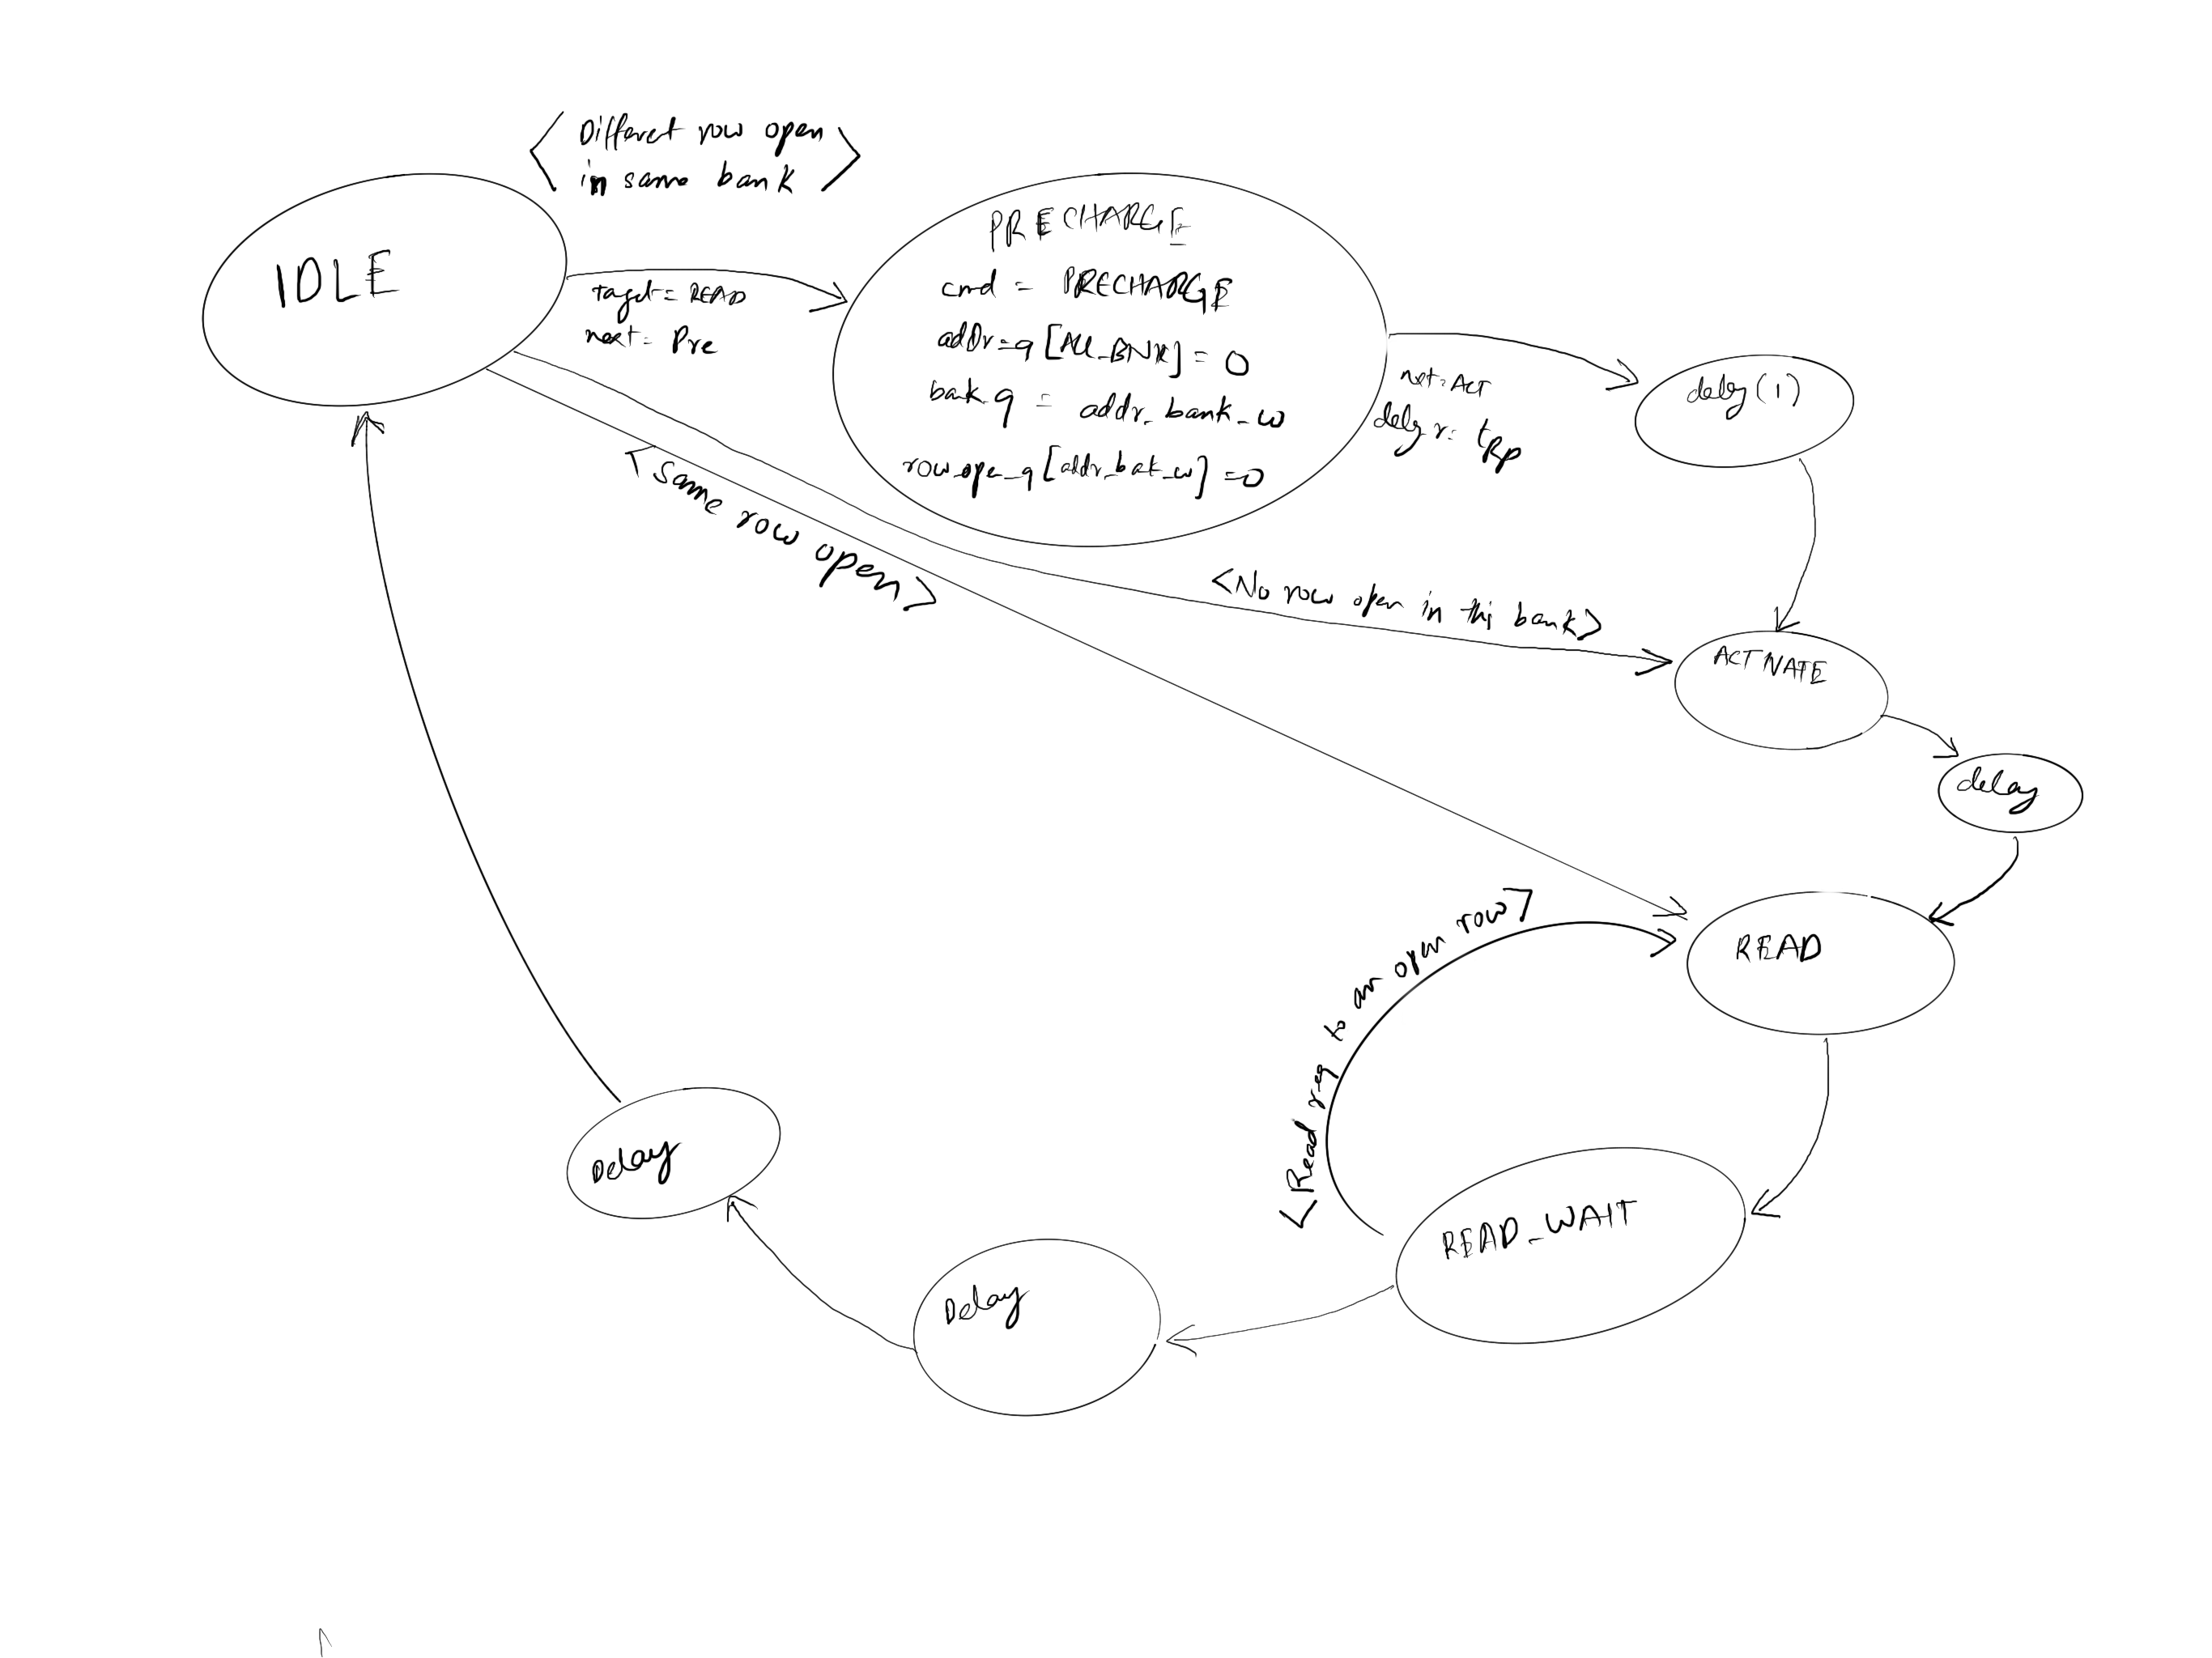 <Differet row open
in same bank>
IDLE
Taget = READ
next = Pre
PRECHARGE
cmd = PRECHARGE
addr_q [ALL_BNK] = 0
bank q = addr_bank_w
row_open_q [addr_bak_w] = 0
nxt = ACT
delay r = tRP
delay (1)
<same row open>
<No row open in this bank>
ACTIVATE
delay
READ
<Read req to an open row>
READ_WAIT
Delay
Delay